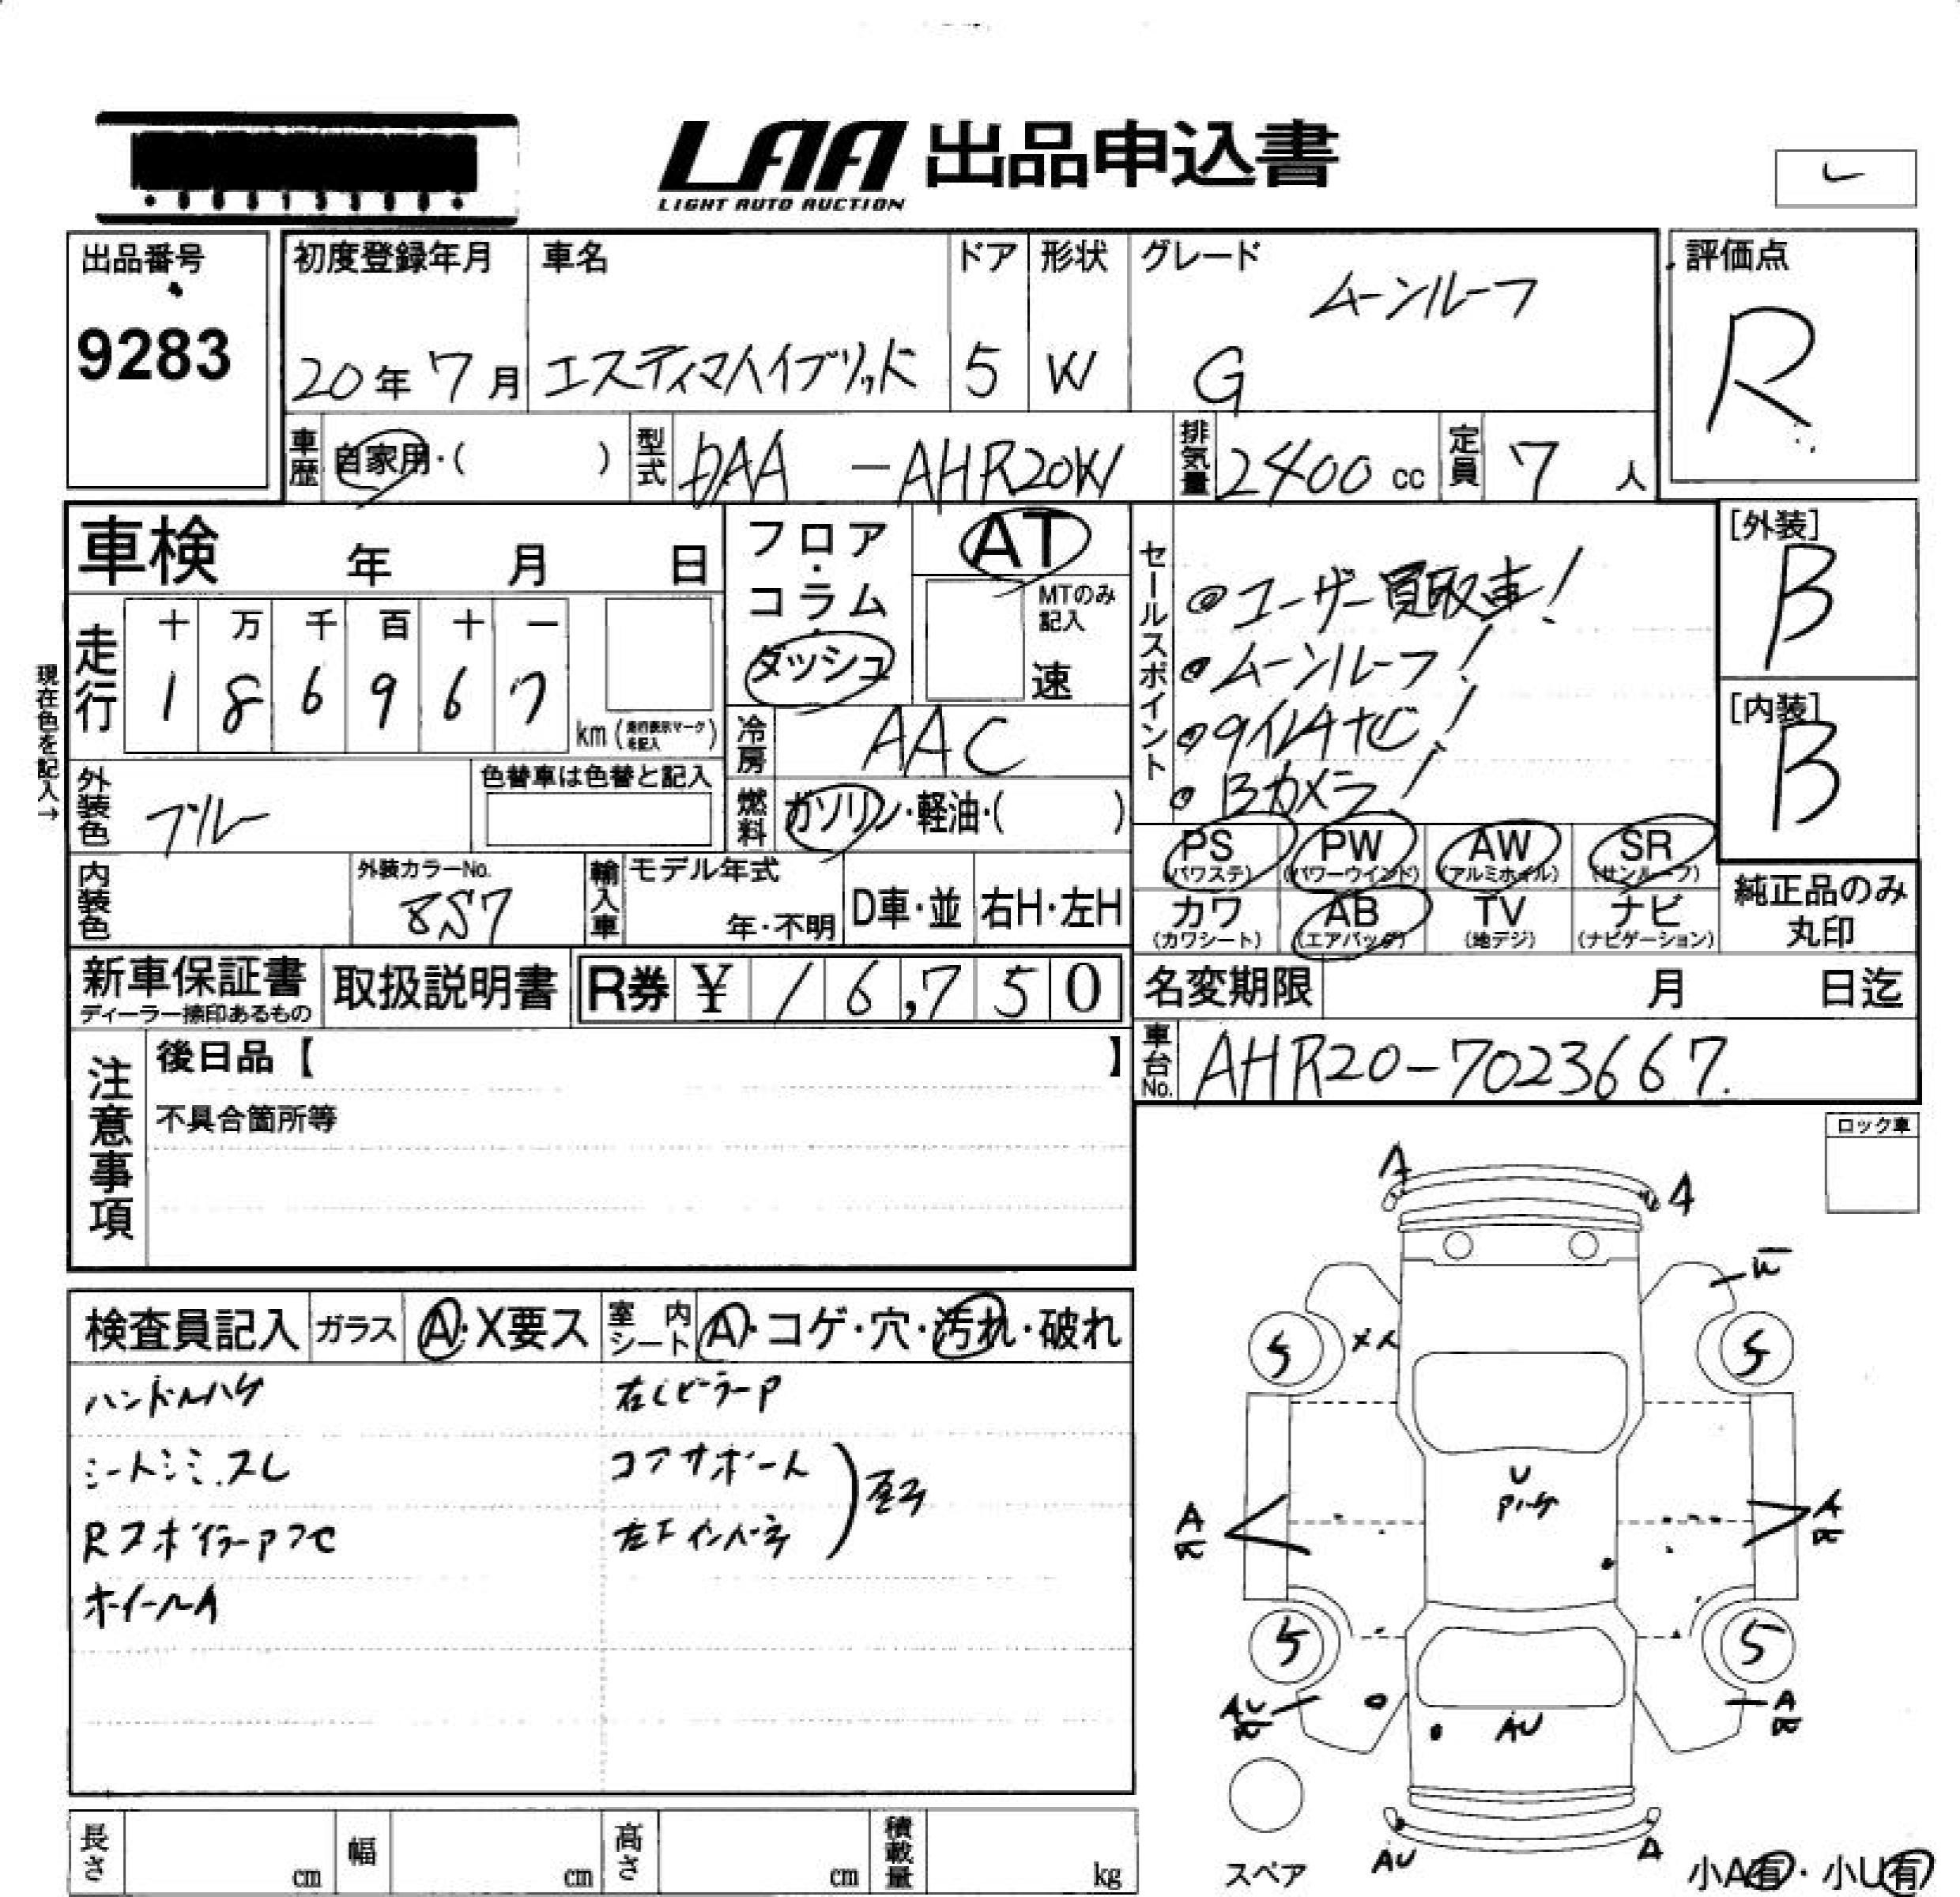 LAA 出品申込書
LIGHT AUTO AUCTION
レ
出品番号
9283
初度登録年月
20年7月
車名
エスティマハイブリッド
ドア
5
形状
W
グレード
ムーンルーフ
G
評価点
R
車歴 自家用・( )
型式 DAA-AHR20W
排気量 2400 cc
定員 7 人
車検 年 月 日
現在色を記入→
走行
十 万 千 百 十 一
1 8 6 9 6 7
km (走行表示マークを記入)
フロア・コラム・ダッシュ
AT
MTのみ記入
速
冷房 AAC
燃料 ガソリン・軽油・( )
外装色 ブルー
色替車は色替と記入
内装色
外装カラーNo.
8S7
輸入車
モデル年式
年・不明
D車・並
右H・左H
セールスポイント
◎ユーザー買取車!
◎ムーンルーフ!
◎Bカメラ!
[外装]
B
[内装]
B
PS
(パワステ)
PW
(パワーウインド)
AW
(アルミホイル)
SR
(サンルーフ)
カワ
(カワシート)
AB
(エアバッグ)
TV
(地デジ)
ナビ
(ナビゲーション)
純正品のみ
丸印
新車保証書
ディーラー捺印あるもの
取扱説明書
R券 ¥ 16,750
名変期限 月 日迄
車台No. AHR20-7023667.
注意事項
後日品【 】
不具合箇所等
ロック車
検査員記入
ガラス A・X要ス
室内シート A・コゲ・穴・汚れ・破れ
ハンドルハゲ
シートシミ.スレ
Rスポイラーpフセ
ホイールA
右CピラーP
コアサポート
左下インパネ
A
A
W
メド
5
5
U
Pハゲ
A
W
A
W
5
5
AU
W
A
W
AU
AU
A
スペア
小A有・小U有
長さ cm
幅 cm
高さ cm
積載量 kg